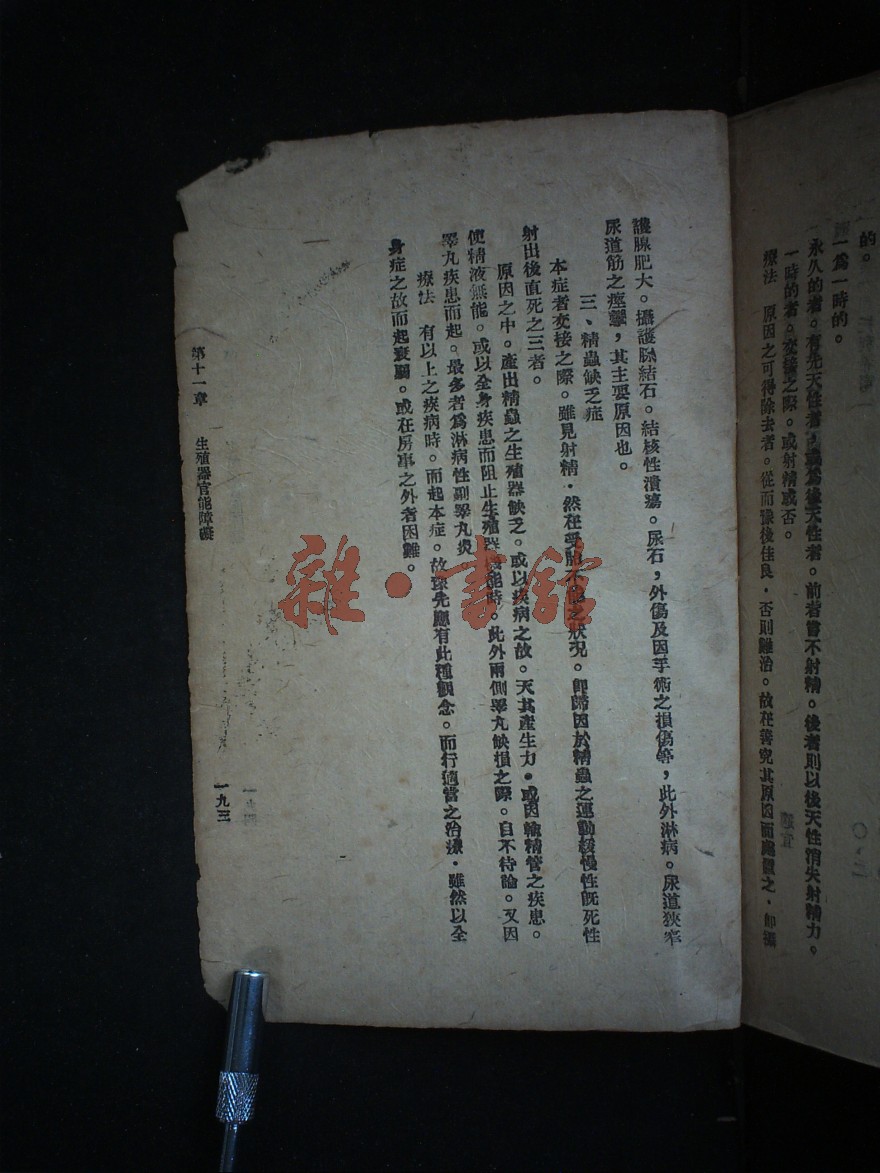 的。
一爲一時的。
永久的者。有先天性者。或爲後天性者。前者嘗不射精。後者則以後天性消失射精力。
一時的者。交接之際。或射精或否。
療法　原因之可得除去者。從而豫後佳良．否則難治。故在善究其原因而處置之．卽攝
護腺肥大。攝護腺結石。結核性潰瘍。尿石，外傷及因手術之損傷等，此外淋病。尿道狹窄
尿道筋之痙攣，其主要原因也。
三、精蟲缺乏症
本症者交接之際。雖見射精．然在受胎不能之狀況。卽歸因於精蟲之運動緩慢性旣死性
射出後直死之三者。
原因之中。產出精蟲之生殖器缺乏。或以疾病之故。夭其產生力．或因輸精管之疾患。
便精液無能。或以全身疾患而阻止生殖器機能時。此外兩側睪丸缺損之際。自不待論。又因
睪丸疾患而起。最多者爲淋病性副睪丸炎
療法　有以上之疾病時。而起本症。故豫先應有此種觀念。而行適當之治療．雖然以全
身症之故而起衰弱。或在房事之外者困難。
第十一章　生殖器官能障礙
一九三
雜·書館